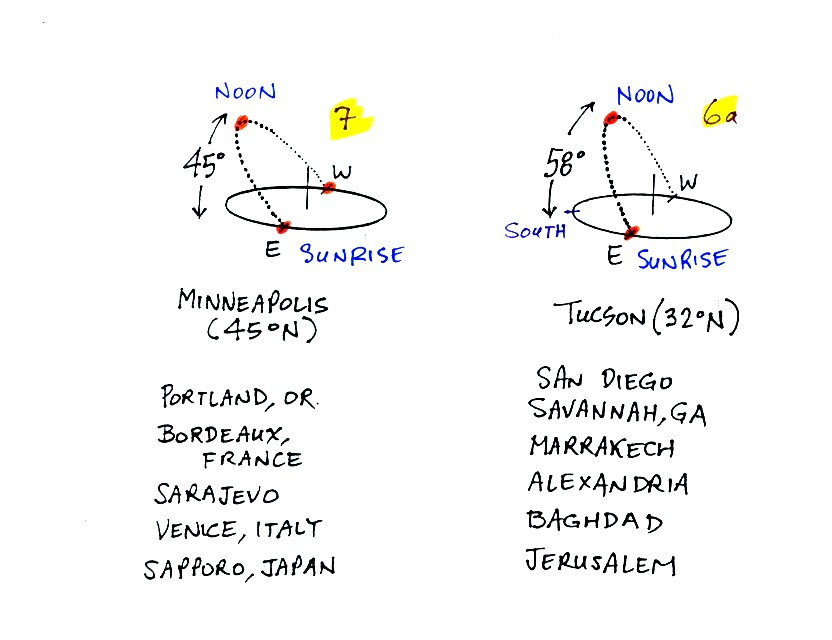 NOON
7
45°
W
E SUNRISE
MINNEAPOLIS
(45°N)
PORTLAND, OR.
BORDEAUX,
FRANCE
SARAJEVO
VENICE, ITALY
SAPPORO, JAPAN
NOON
6a
58°
W
SOUTH
E SUNRISE
TUCSON (32°N)
SAN DIEGO
SAVANNAH, GA
MARRAKECH
ALEXANDRIA
BAGHDAD
JERUSALEM